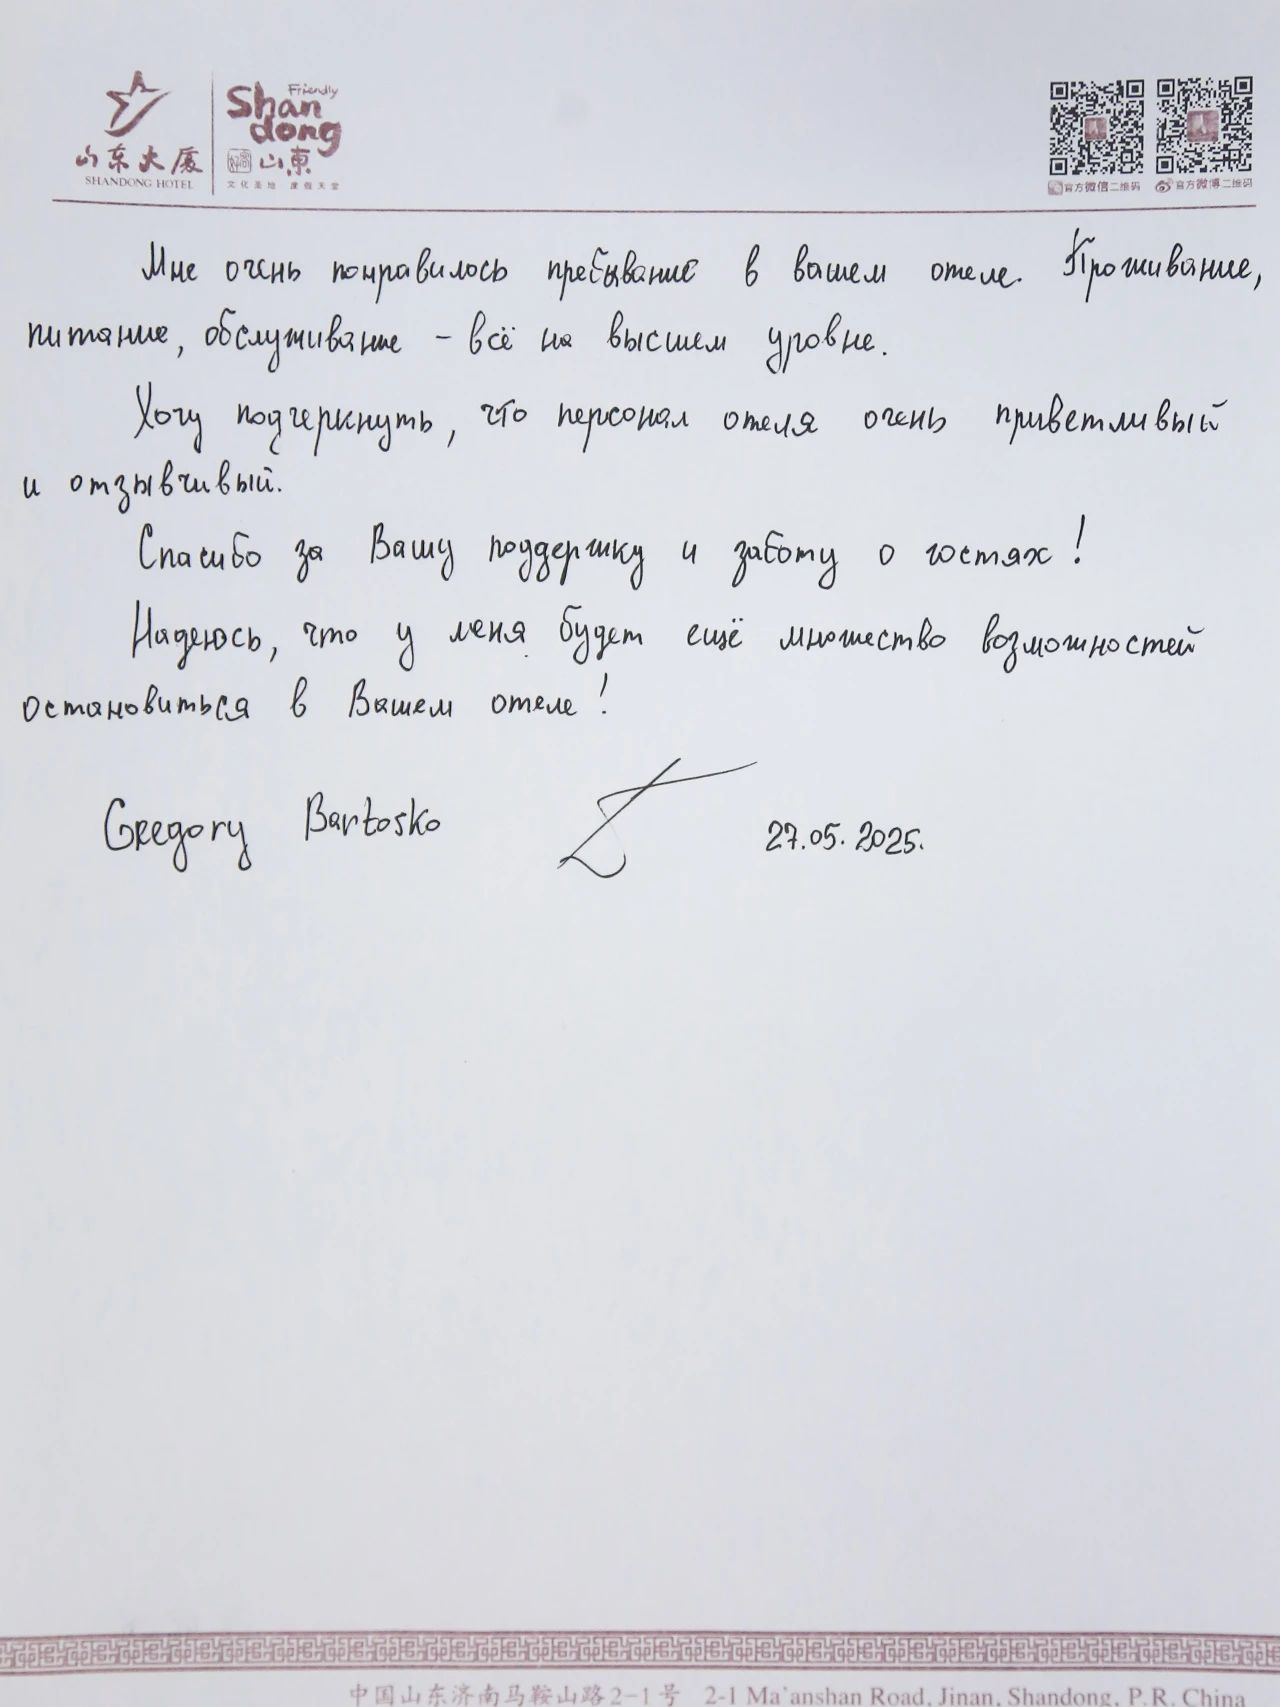 山东大厦
SHANDONG HOTEL
Friendly
Shan
dong
好客 山東
文化圣地 度假天堂
官方微信二维码 官方微博二维码
Мне очень понравилось пребывание в вашем отеле. Проживание,
питание, обслуживание - всё на высшем уровне.
Хочу подчеркнуть, что персонал отеля очень приветливый
и отзывчивый.
Спасибо за Вашу поддержку и заботу о гостях!
Надеюсь, что у меня будет ещё множество возможностей
остановиться в Вашем отеле!
Gregory Bartosko 27.05.2025.
中国山东济南马鞍山路2-1号 2-1 Ma'anshan Road, Jinan, Shandong, P.R. China